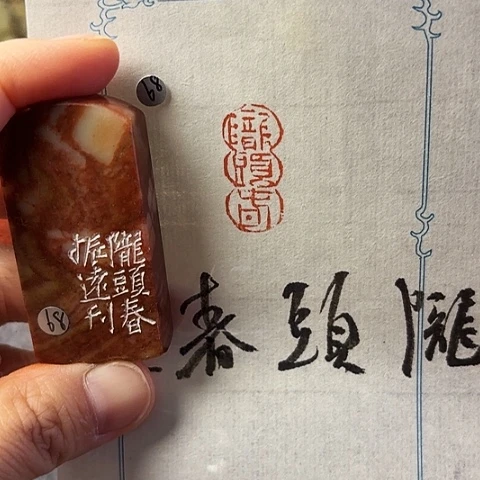 隴頭春
隴頭春
隴頭春
振遠刊
89
89